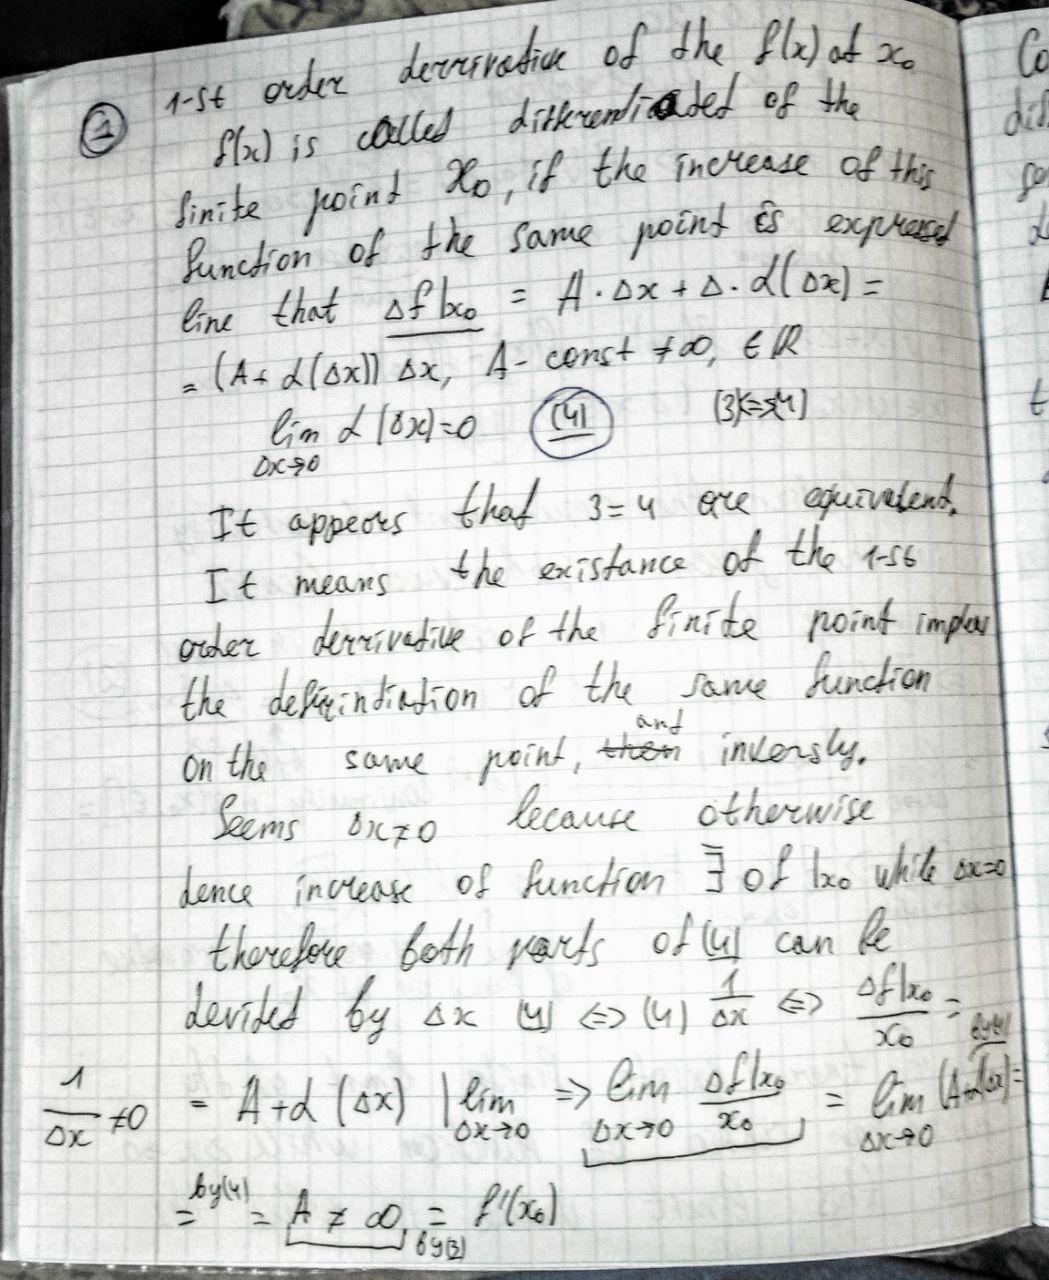 1-st order derrivative of the f(x) at x₀
② f(x) is called differentiated of the
finite point x₀, if the increase of this
function of the same point is expressed
line that Δf|x₀ = A · Δx + Δ · α(Δx) =
= (A + α(Δx)) Δx, A - const ≠ ∞, ∈ ℝ
lim α(Δx) = 0 (4) (3)<=>(4)
Δx→0
It appears that 3=4 are equivalent.
It means the existance of the 1-st
order derrivative of the finite point
the of the same function
on the same point, and inversly.
Seems Δx≠0 because otherwise
increase of function ∃̅ of |x₀ while Δx=0
therefore both parts of (4) can be
devided by Δx (4) ⇔ (4) 1/Δx ⇔ Δf|x₀/x₀ =
1/Δx ≠ 0 = A + α(Δx) | lim Δx→0 ⇒ lim Δx→0 Δf|x₀/x₀ = lim Δx→0 (A+α(Δx)) =
= by(4) = A ≠ ∞ = by(3) f'(x₀)